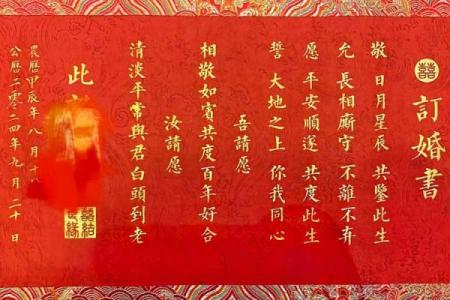 囍
訂婚書
敬 日月星辰 共鑒此生
允 長相廝守 不離不弃
愿 平安順遂 共度此生
誓 大地之上 你我同心
吾請愿
相敬如賓共度百年好合
汝請愿
清淡平常與君白頭到老
此
農曆甲辰年八月十八
公曆二零二四年九月二十日